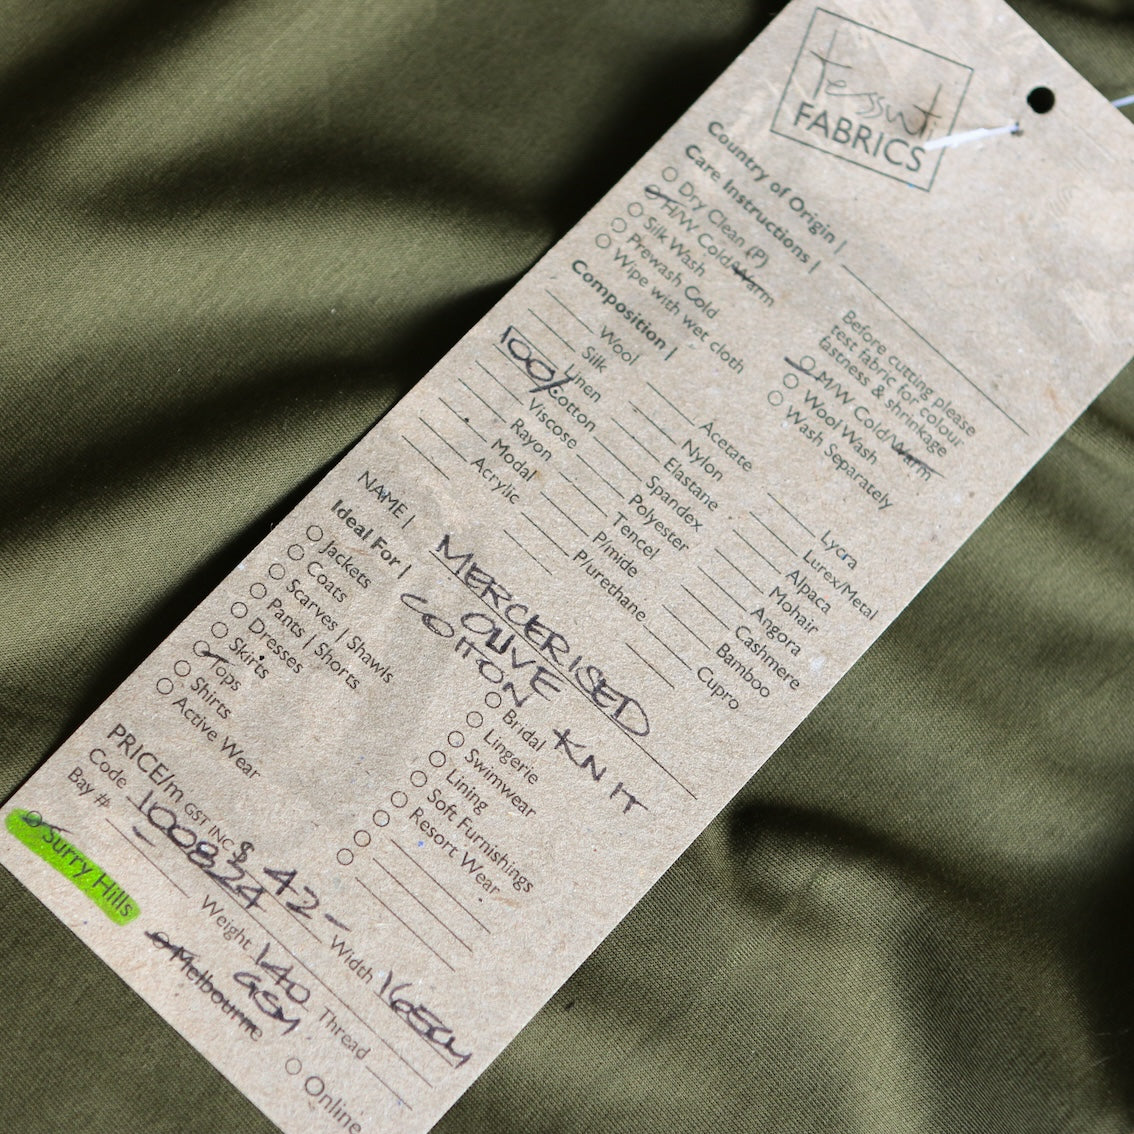 Tessuti
FABRICS
Country of Origin |
Care Instructions |
Dry Clean (P)
H/W Cold/Warm
Silk Wash
Prewash Cold
Wipe with wet cloth
Before cutting please
test fabric for colour
fastness & shrinkage
M/W Cold/Warm
Wool Wash
Wash Separately
Composition |
Wool
Silk
Linen
100% Cotton
Viscose
Rayon
Modal
Acrylic
Acetate
Nylon
Elastane
Spandex
Polyester
Tencel
P/mide
P/urethane
Lycra
Lurex/Metal
Alpaca
Mohair
Angora
Cashmere
Bamboo
Cupro
NAME | MERCERISED
OLIVE
COTTON KNIT
Ideal For |
Jackets
Coats
Scarves | Shawls
Pants | Shorts
Dresses
Skirts
Tops
Shirts
Active Wear
Bridal
Lingerie
Swimwear
Lining
Soft Furnishings
Resort Wear
PRICE/m GST INC $ 42-
Code 100824 Width 165cm
Bay # Weight 140 GSM Thread
Surry Hills Melbourne Online